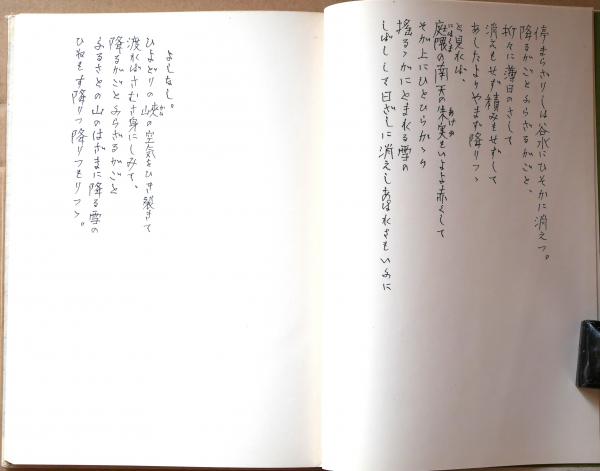 停まらざりしは谷水にひそかに消えつ。
降るがごとふらざるがごと、
折々に薄日のさして
消えもせず積みもせずして
あしたよりやまず降りつゝ
と見れば、
庭隈の南天の朱実をいよよ赤くして
にはくま
あけみ
そが上にひとひらがゝり
揺るゝがにとまれる雪の
しばしして日ざしに消えしあはれさもいふに
よしなし。
ひよどりの峡の空気をひき裂きて
かひ
渡ればさむさ身にしみて、
降るがごとふらざるがごと
ふるさとの山のはざまに降る雪の
ひねもす降りつ降りつもりつゝ。